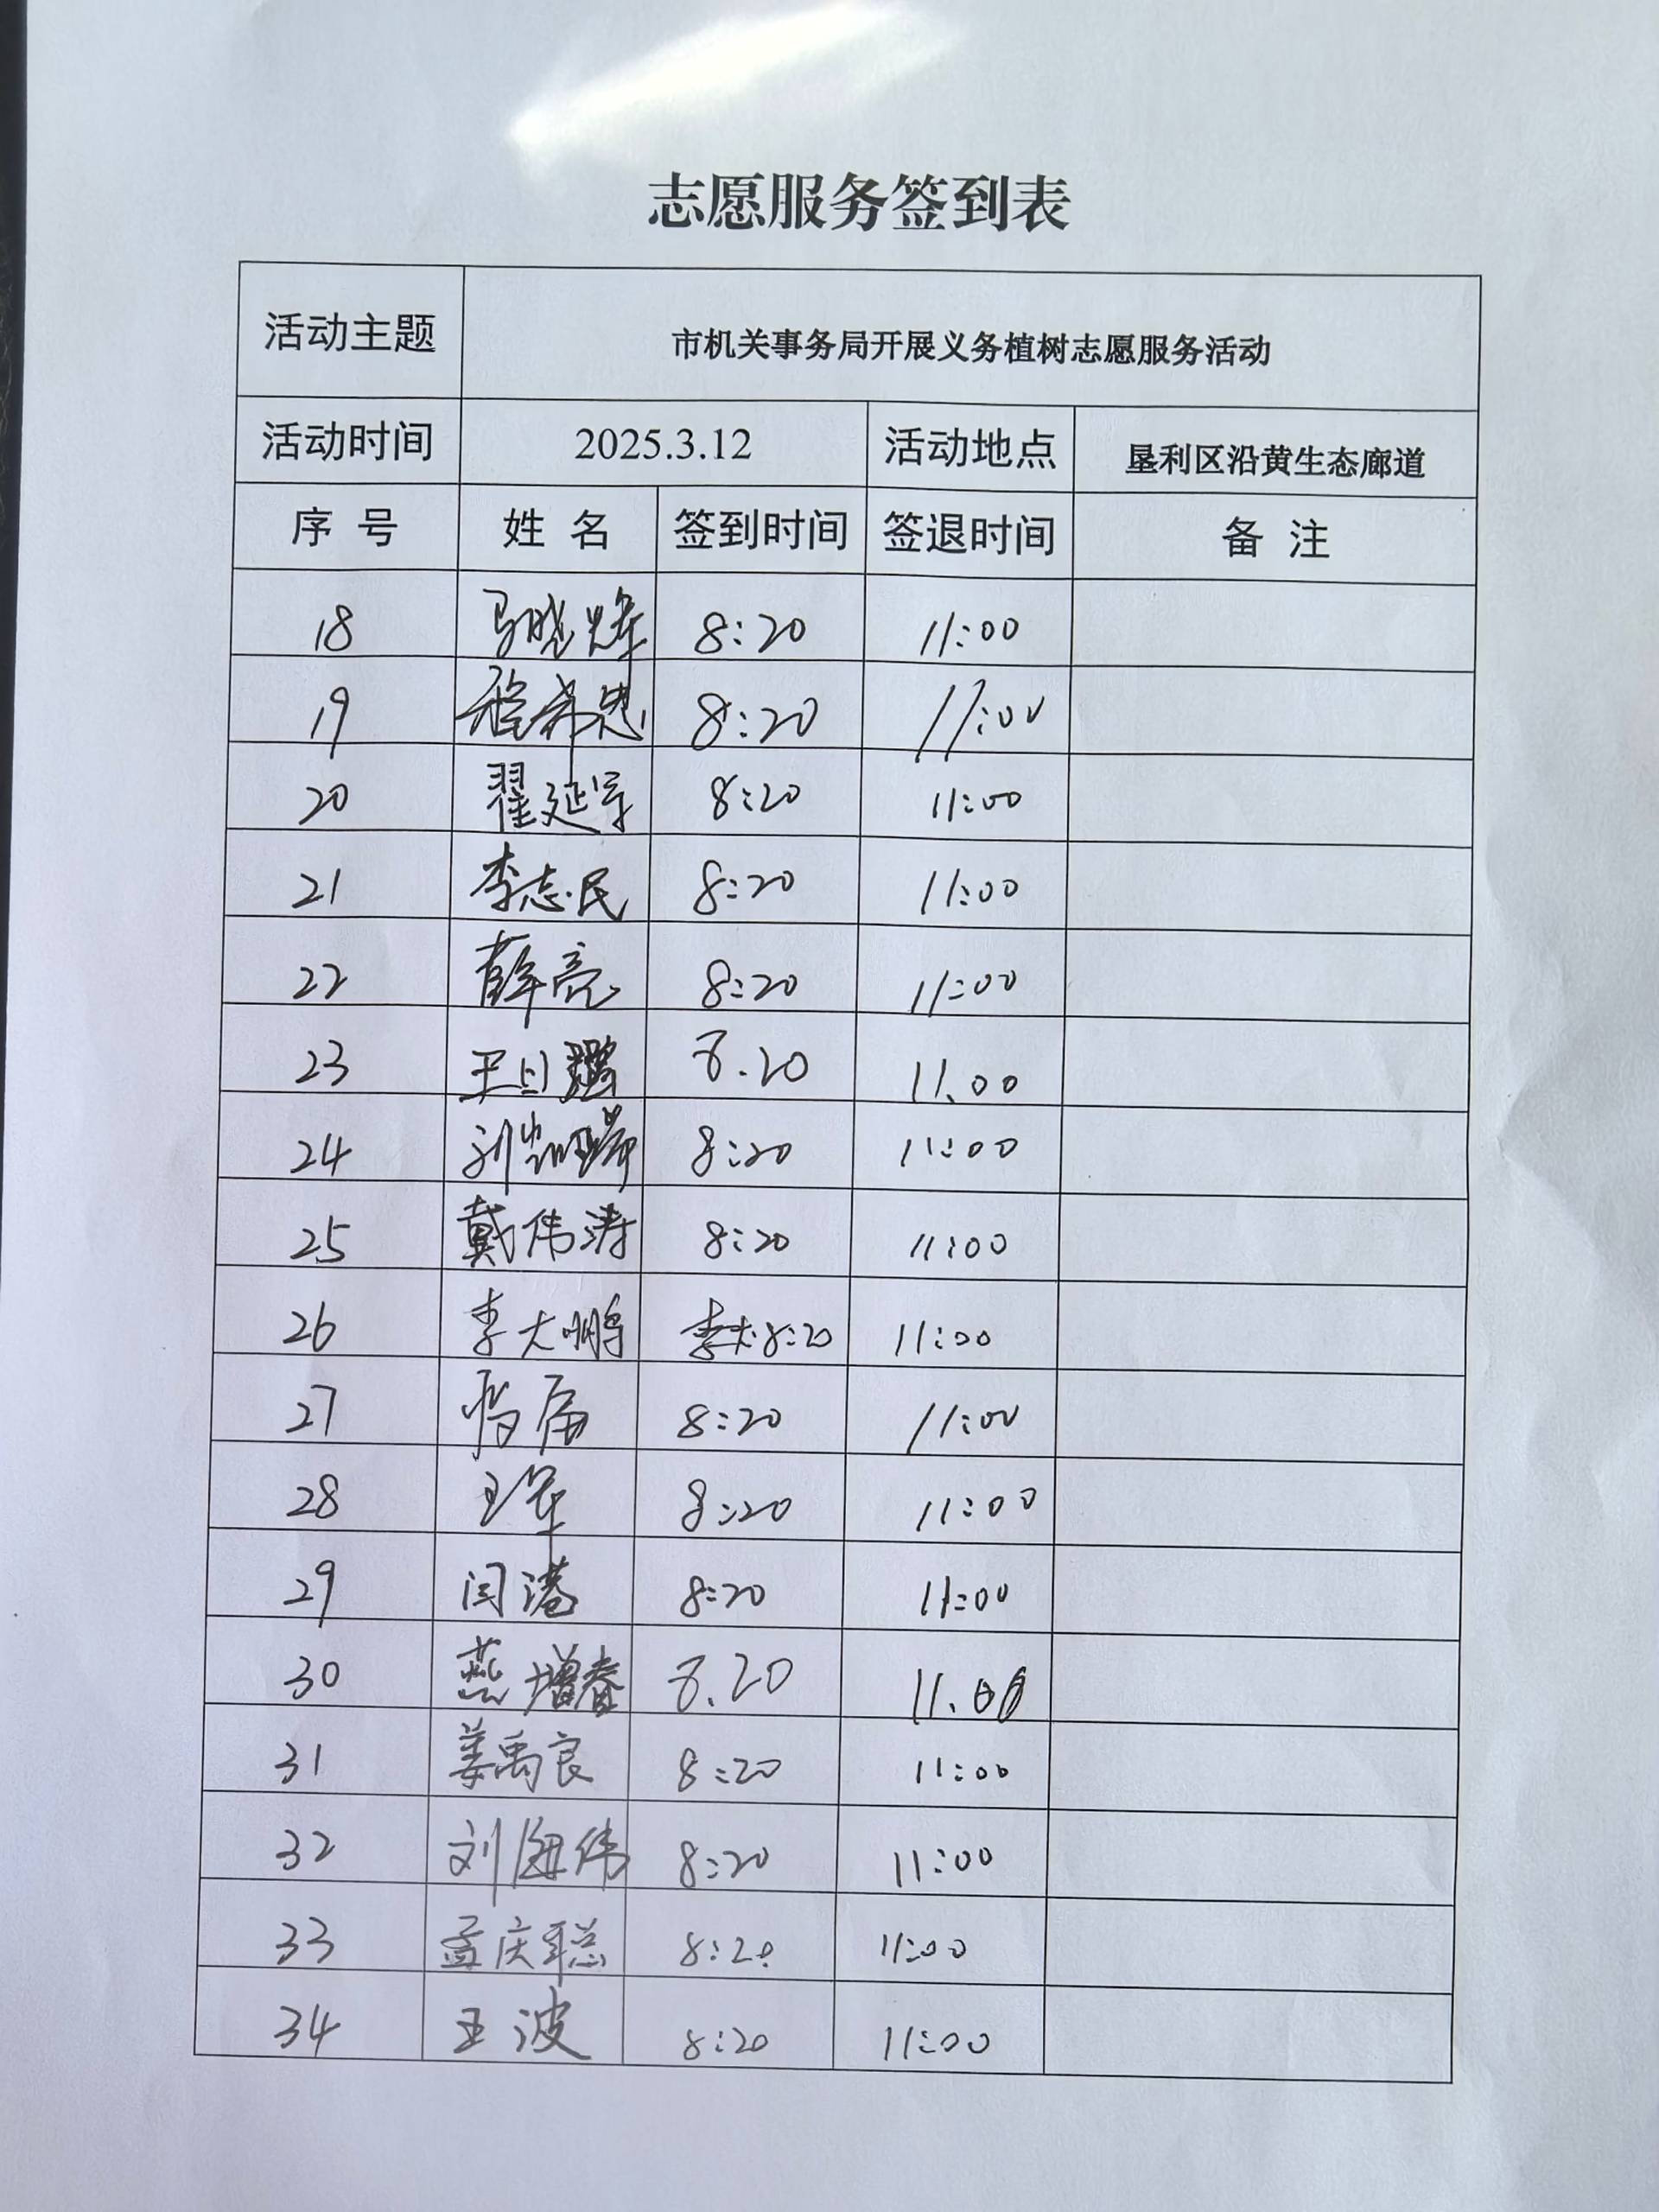 志愿服务签到表
活动主题 市机关事务局开展义务植树志愿服务活动
活动时间 2025.3.12 活动地点 垦利区沿黄生态廊道
序 号 姓 名 签到时间 签退时间 备 注
18 马晓峰 8:20 11:00
19 8:20 11:00
20 翟延宇 8:20 11:00
21 李志民 8:20 11:00
22 薛亮 8:20 11:00
23 王日鹏 8.20 11.00
24 刘 8:20 11:00
25 戴伟涛 8:20 11:00
26 李大鹏 8:20 11:00
27 8:20 11:00
28 王军 8:20 11:00
29 闫港 8:20 11:00
30 燕增春 8.20 11.00
31 姜禹良 8:20 11:00
32 刘海伟 8:20 11:00
33 孟庆聪 8:20 11:00
34 王波 8:20 11:00